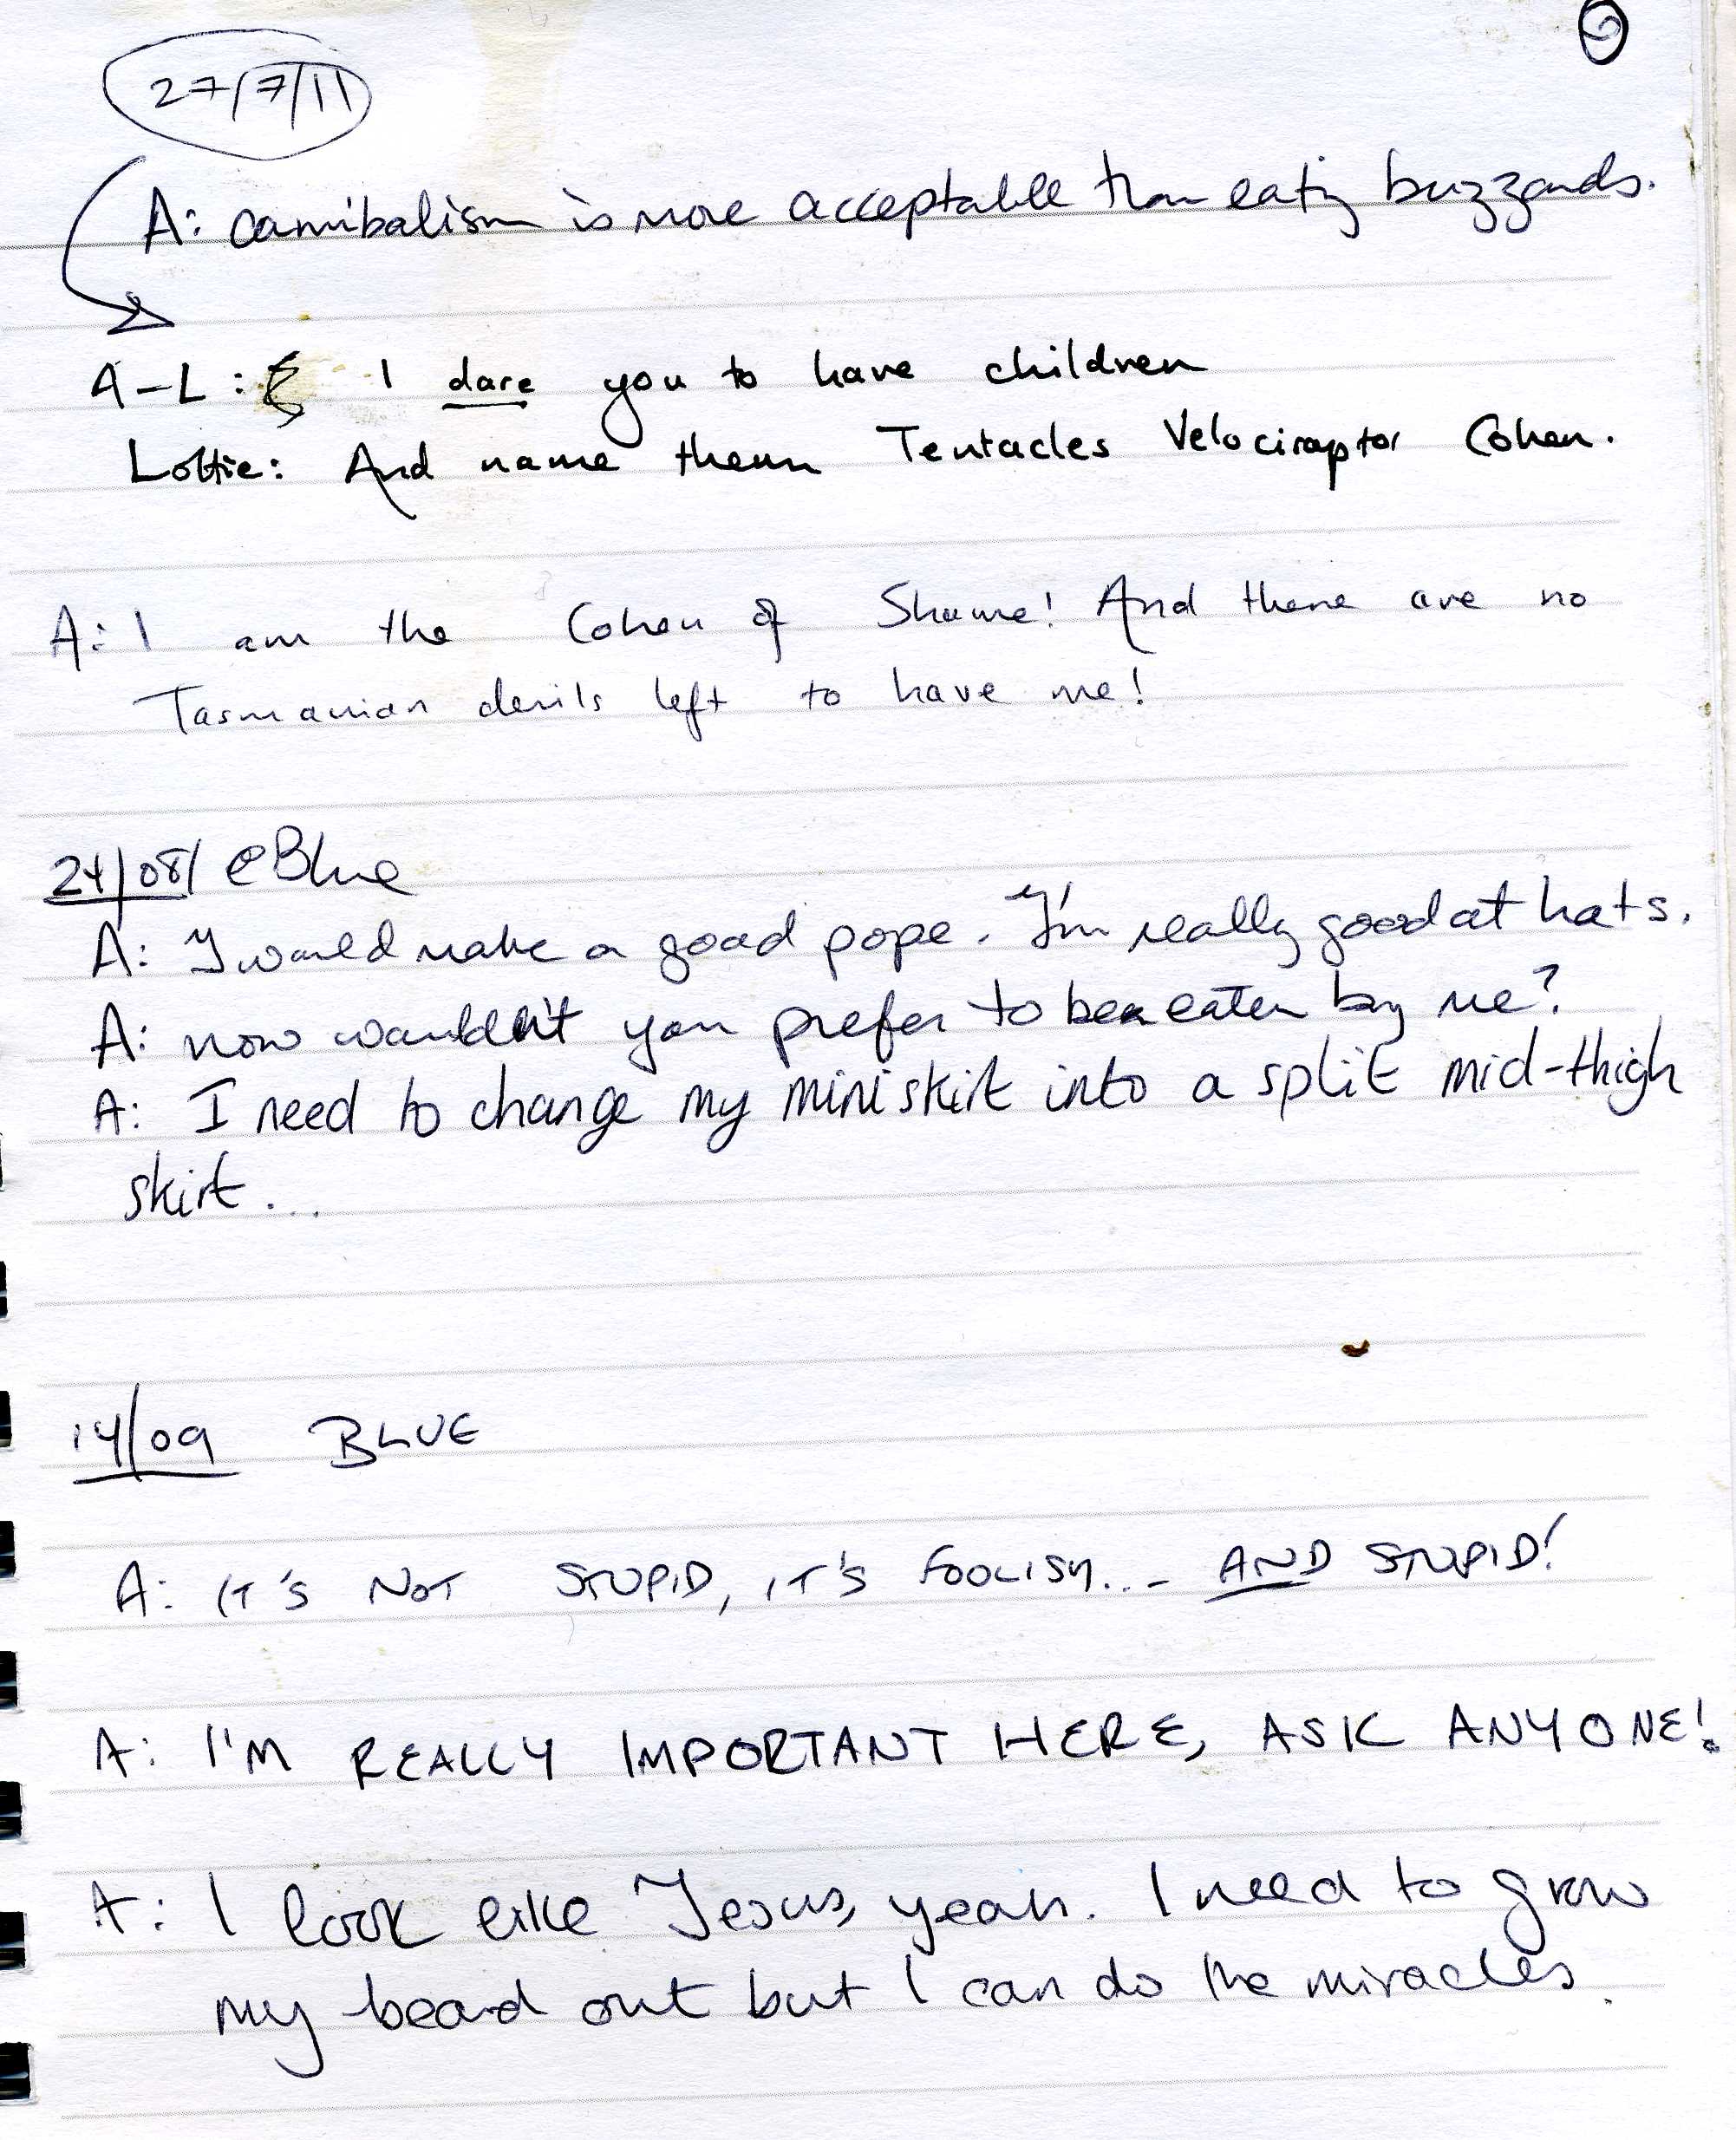 27/7/11
A: cannibalism is more acceptable than eating buzzards.
A-L: I dare you to have children
Lottie: And name them Tentacles Velociraptor Cohen.
A: I am the Cohen of Shame! And there are no
Tasmanian devils left to have me!
24/08/ @Blue
A: I would make a good pope. I'm really good at hats.
A: now wouldn't you prefer to be eaten by me?
A: I need to change my miniskirt into a split mid-thigh
skirt...
14/09 BLUE
A: IT'S NOT STUPID, IT'S FOOLISH... AND STUPID!
A: I'M REALLY IMPORTANT HERE, ASK ANYONE!
A: I look like Jesus, yeah. I need to grow
my beard out but I can do the miracles.